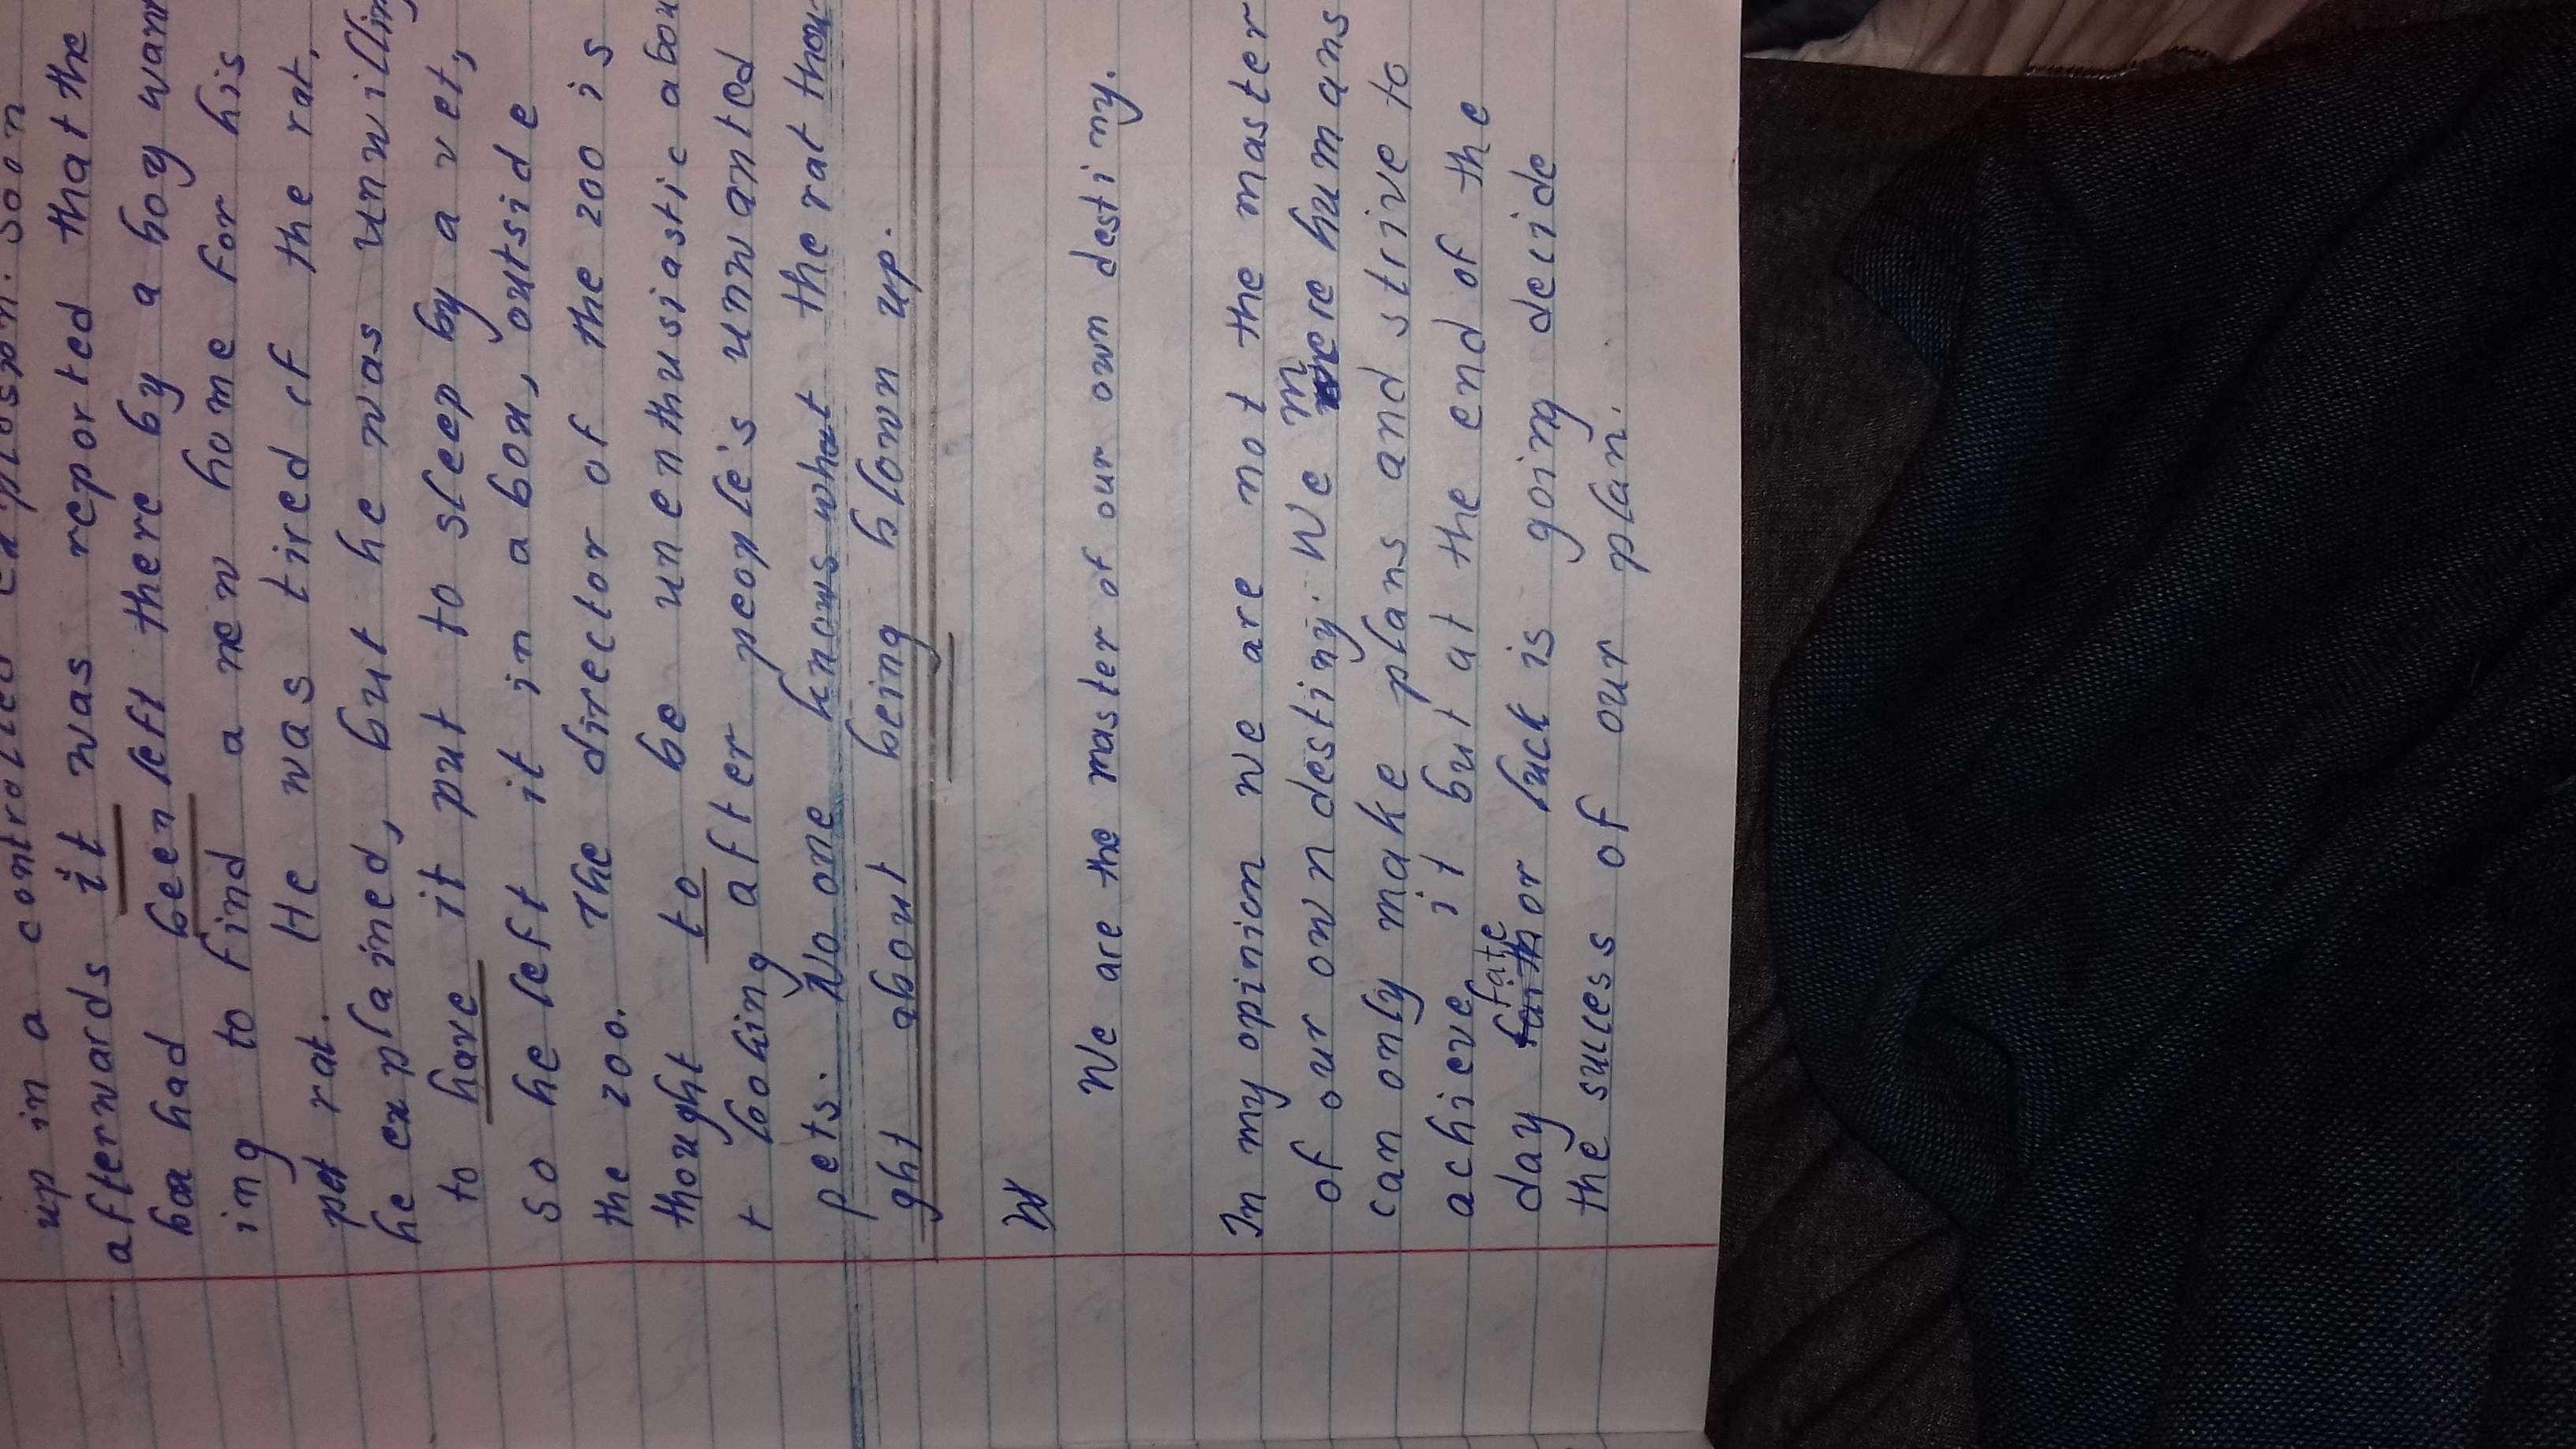 up in a controlled explosion. Soon
afterwards it was reported that the
box had been left there by a boy want
ing to find a new home for his
pet rat. He was tired of the rat,
he explained, but he was unwilling
to have it put to sleep by a vet,
so he left it in a box, outside
the zoo. The director of the zoo is
thought to be unenthusiastic abou
t looking after people's unwanted
pets. No one knows what the rat thou-
ght about being blown up.
We are the master of our own destiny.
In my opinion we are not the master
of our own destiny. We mere humans
can only make plans and strive to
achieve it but at the end of the
day fate or luck is going decide
the success of our plan.